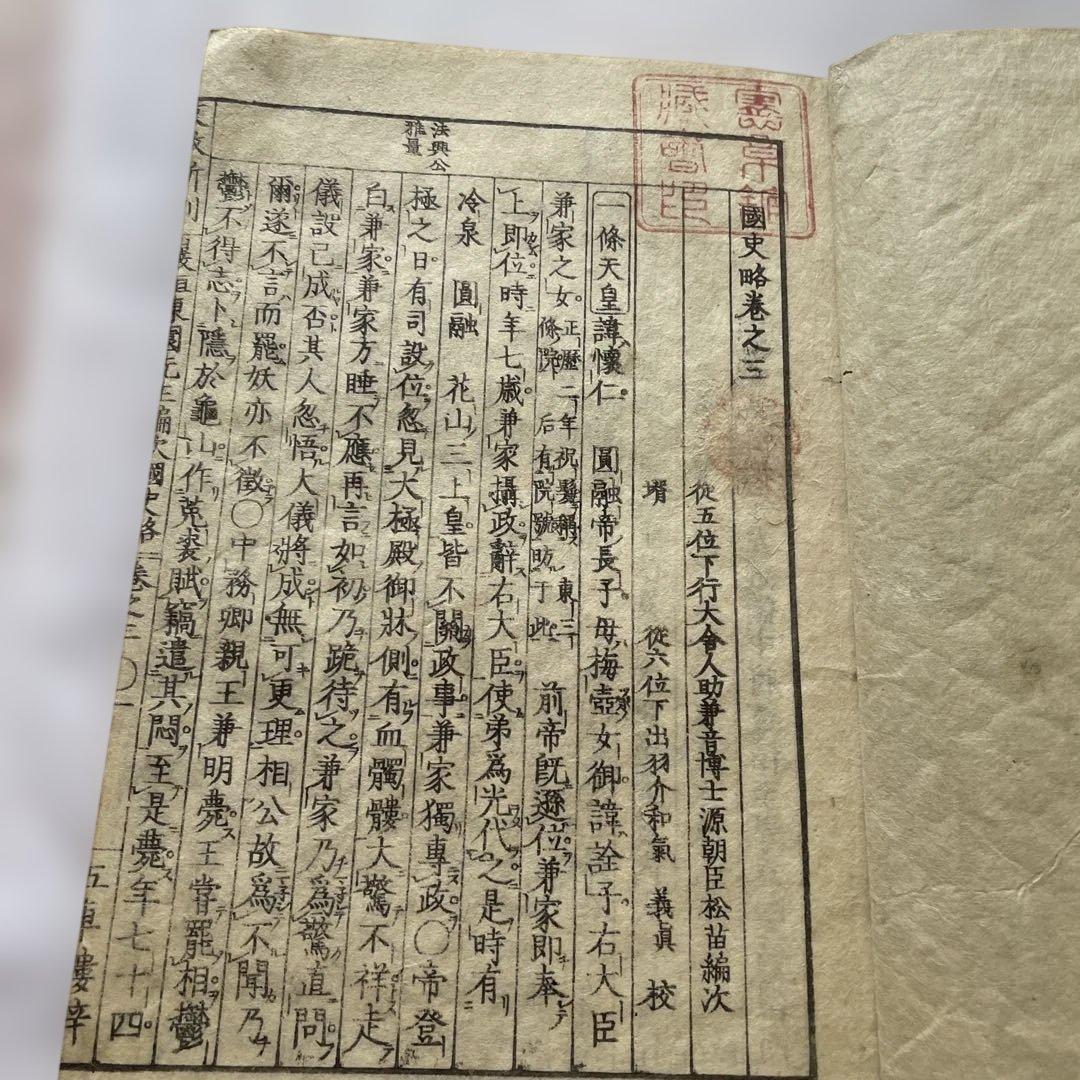 國史略卷之三
從五位下行大舍人助兼音博士源朝臣松苗編次
壻 從六位下出羽介和氣 義眞 校
一條天皇諱懷仁 圓融帝長子母梅壺女御諱詮子右大臣
兼家之女 正曆二年祝髮稱東三條院 后有院號昉于此 前帝既遜位兼家即奉
上即位時年七歳兼家攝政辭右大臣使弟爲光代之是時有
冷泉 圓融 花山三上皇皆不關政事兼家獨專政〇帝登
極之日有司設位忽見大極殿御牀側有血髑髏大驚不祥走
白兼家兼家方睡不應再言如初乃跪待之兼家乃爲驚直問
儀設已成否其人忽悟大儀將成無可更理相公故爲不聞乃
爾遂不言而罷妖亦不徵〇中務卿親王兼明薨王嘗罷相鬱
鬱不得志卜隱於龜山作菟裘賦竊遣其悶至是薨年七十四
法興公
雅量
國史略 卷之三 〇一